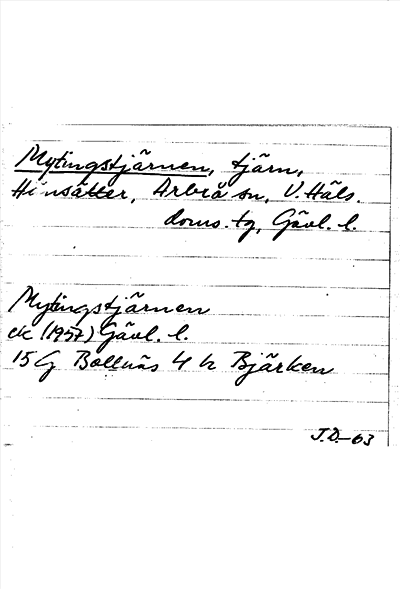 Mytingstjärnen, tjärn,
Hinsätter, Arbrå sn, V. Häls.
doms. tg, Gävl. l.
Mytingstjärnen
ek (1957) Gävl. l.
15 G Bollnäs 4 h Bjärken
J.D.-63